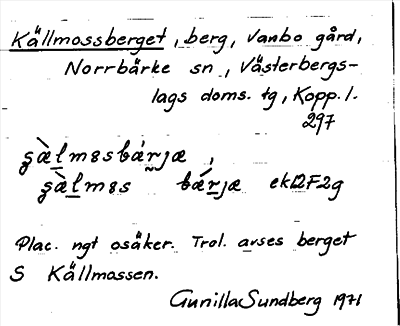 Källmossberget, berg, Vanbo gård,
Norrbärke sn, Västerbergs-
lags doms. tg, Kopp. l.
297
Plac. ngt osäker. Trol. avses berget
S Källmossen.
Gunilla Sundberg 1971